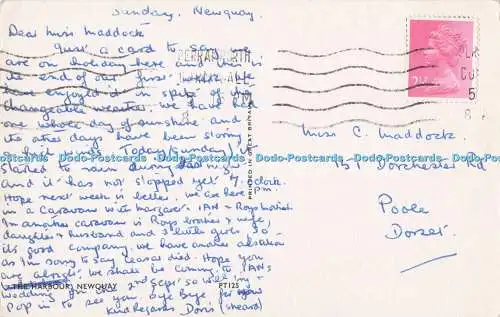 Sunday, Newquay
Dear Miss Maddock
Just a card to say we
are on holiday here and this is
the end of our first week. We
have enjoyed it in spite of the
changeable weather. We have had
one whole day of sunshine and
the other days have been stormy
Today (Sunday) it
started to rain during night
and it has not stopped yet 4 o'clock. pm.
Hope next week is better. We are here
in a Caravan with Margaret. IAN & Roys
In another caravan is Roys brother & wife,
daughter & husband and 3 little girls so
its good company. We have another alsatian
as I'm sorry to say died. Hope you
are alright. We shall be coming to IANs
Wedding on the 2nd Sept so will try
Pop in to see you. Bye Bye for now
Kind Regards Doris (Sheard)
THE HARBOUR, NEWQUAY PT125
PRINTED IN GREAT BRITAIN
2½P
Miss C. Maddock
151 Dorchester Rd
Poole
Dorset.
Dodo-Postcards Dodo-Postcards Dodo-Postcards Dodo-Postcards Dodo-Postcards Dodo-Postcards